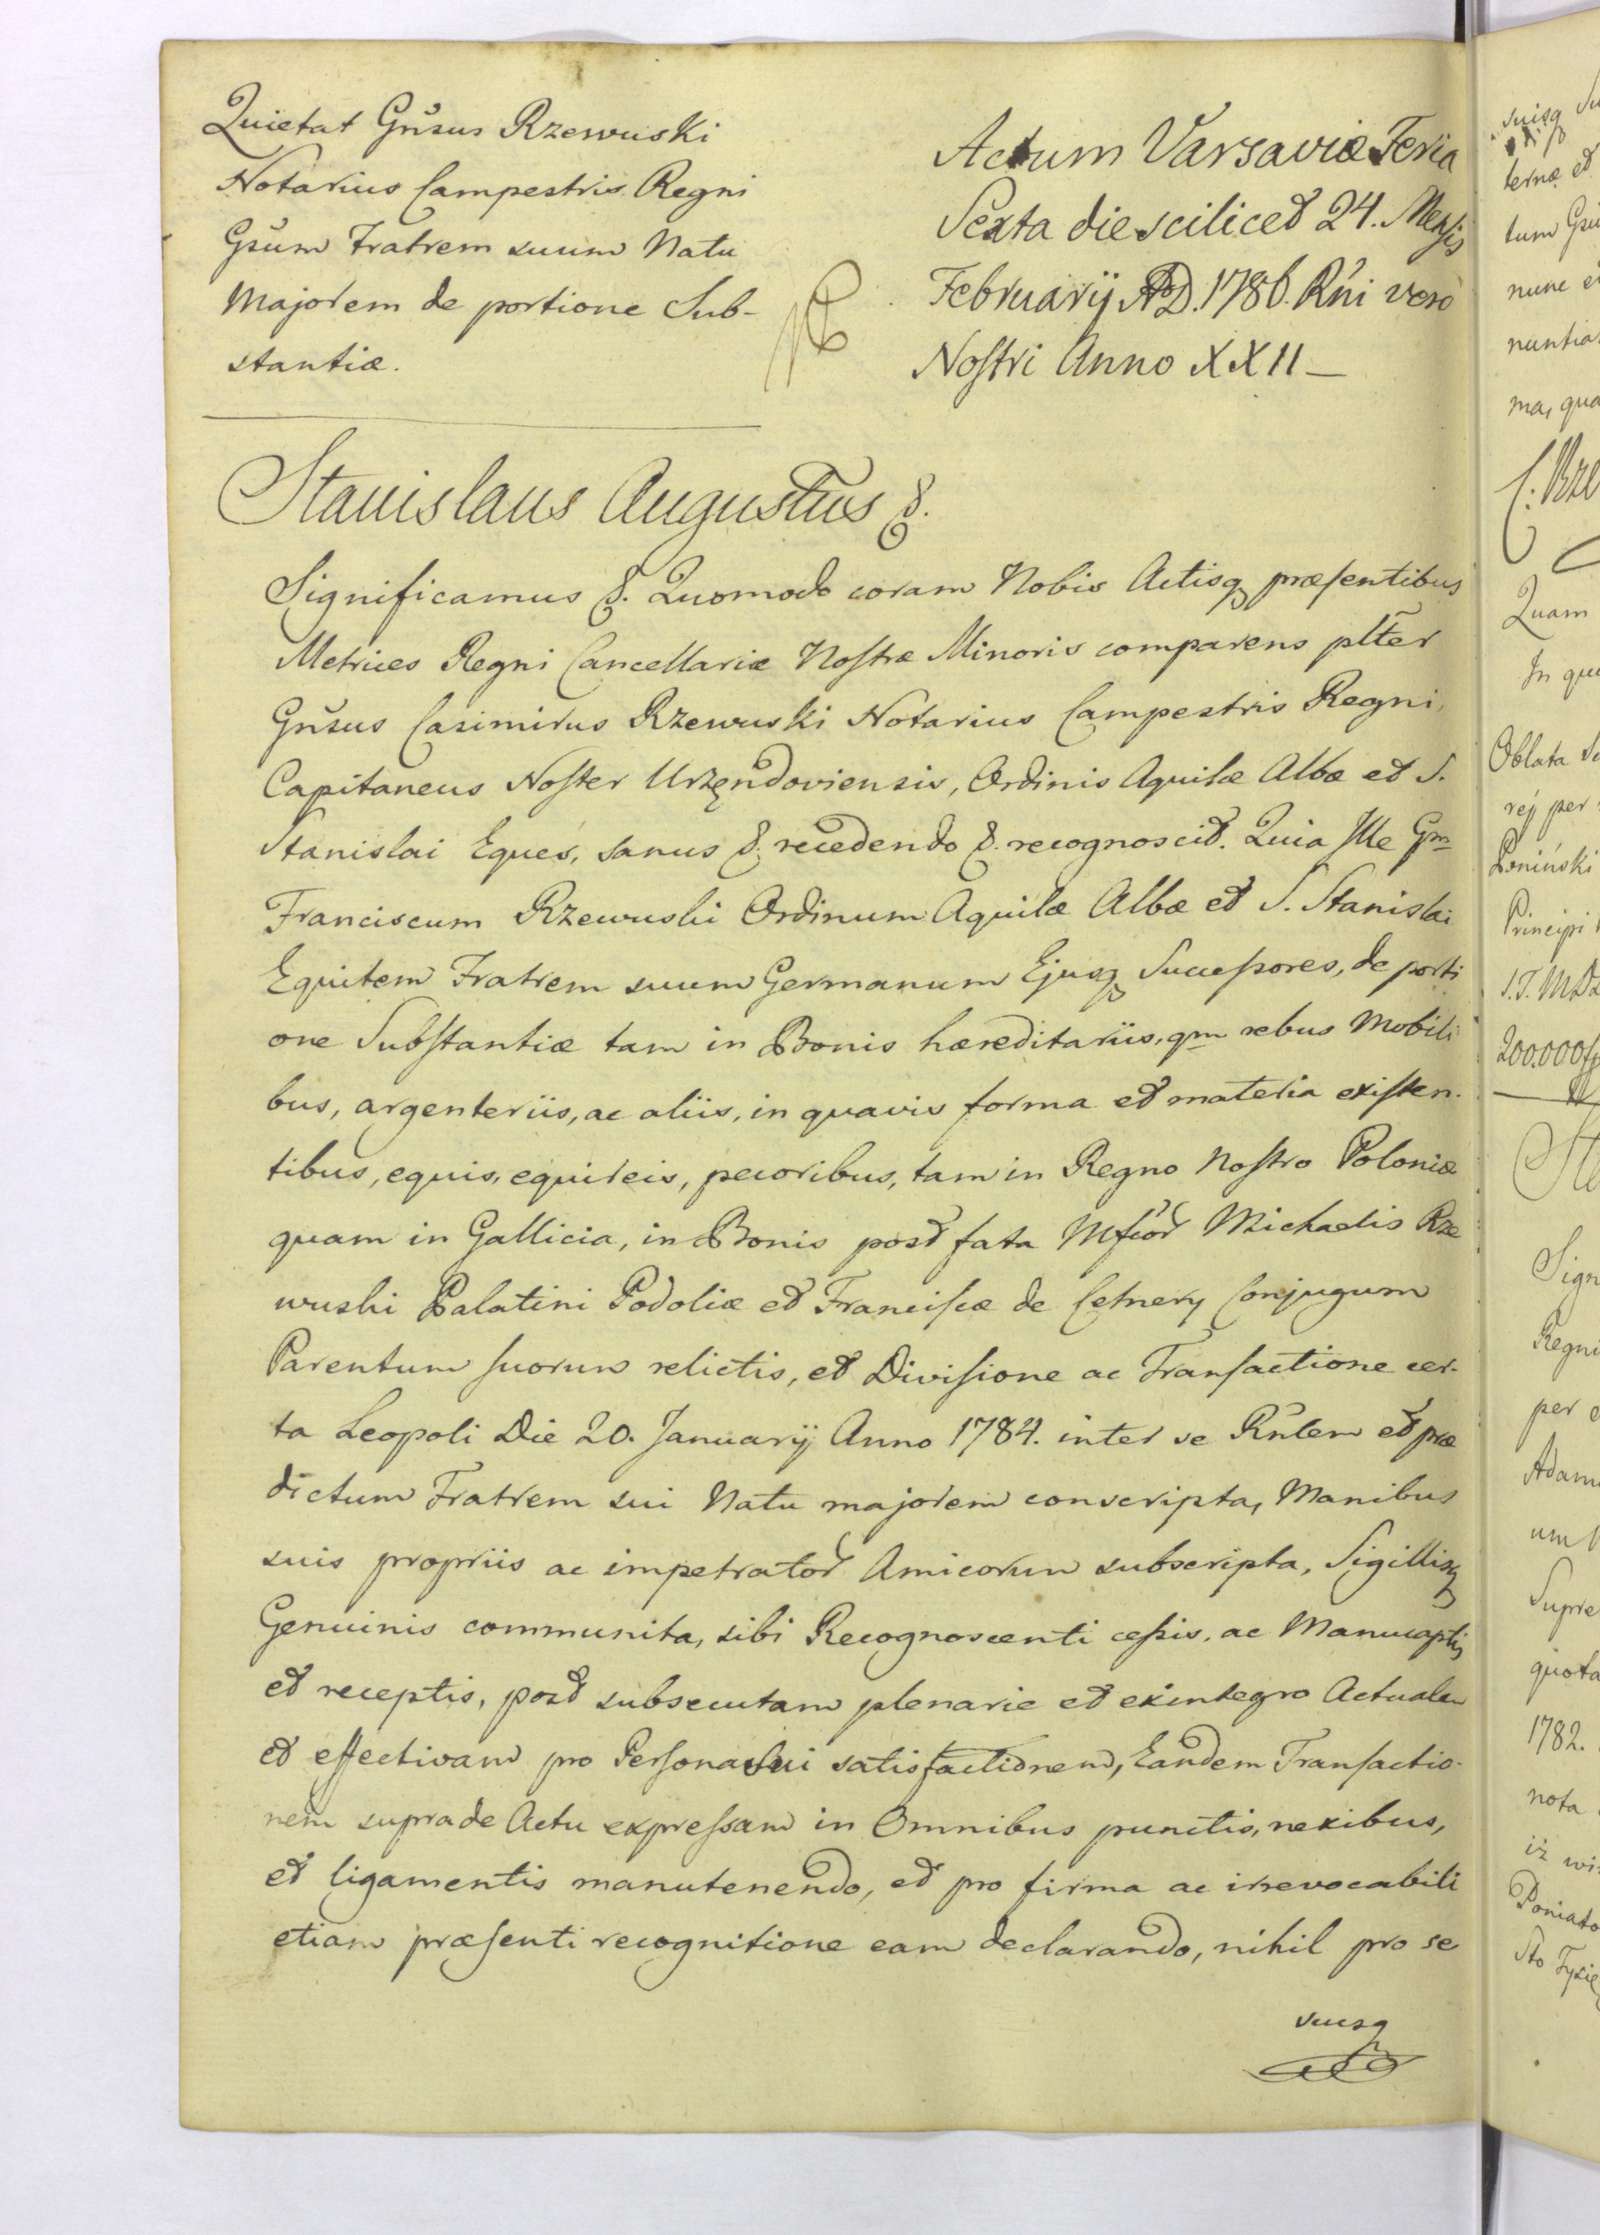 Quietat Gñsus Rzewuski
Notarius Campestris Regni
Gsum Fratrem suum Natu
Majorem de portione Sub-
stantiæ.
Actum Varsaviæ Feria
Sexta die scilicet 24. Mensis
Februarij AD. 1786. Rñi vero
Nostri Anno XXII_
Stanislaus Augustus &.
Significamus &. Quomodo coram Nobis Actisq præsentibus
Metrices Regni Cancellariæ Nostræ Minoris comparens plter
Gñsus Casimirus Rzewuski Notarius Campestris Regni,
Capitaneus Noster Urzędoviensis, Ordinis Aquilæ Albæ et S.
Stanislai Eques, sanus &. recedendo &. recognoscit. Quia Ille Gm
Franciscum Rzewuski Ordinum Aquilæ Albæ et S. Stanislai
Equitem Fratrem suum Germanum Ejusq Successores, de porti
one Substantiæ tam in Bonis hæreditariis, qm rebus Mobili
bus, argenteriis, ac aliis, in quavis forma et materia existen-
tibus, equis, equireis, pecoribus, tam in Regno Nostro Poloniæ
quam in Gallicia, in Bonis post fata Mfcor Michaelis Rze
wuski Palatini Podoliæ et Franciscæ de Cetnery Conjugum
Parentum suorum relictis, et Divisione ac Transactione cer-
ta Leopoli Die 20. Januarij Anno 1784. inter se Rñtem et præ
dictum Fratrem sui Natu majorem conscripta, Manibus
suis propriis ac impetrator Amicorum subscripta, Sigillisq
Genuinis communita, sibi Recognoscenti cessis, ac Manucaptis
et receptis, post subsecutam plenarie et exintegro Actualem
et effectivam pro Persona sui satisfactionem, Eandem Transactio-
nem supra de Actu expressam in Omnibus punctis, nexibus,
et ligamentis manutenendo, et pro firma ac irrevocabili
etiam præsenti recognitione eam declarando, nihil pro se
suisq
suisq
ternæ et
tum
nunc
nuntia
ma, qua
Quam
In
Oblata
rej per
Poniński
Principi
200.000
Regni
per
Adam
um
Supre
quota
1782.
nota
iż
Poniato
Sto